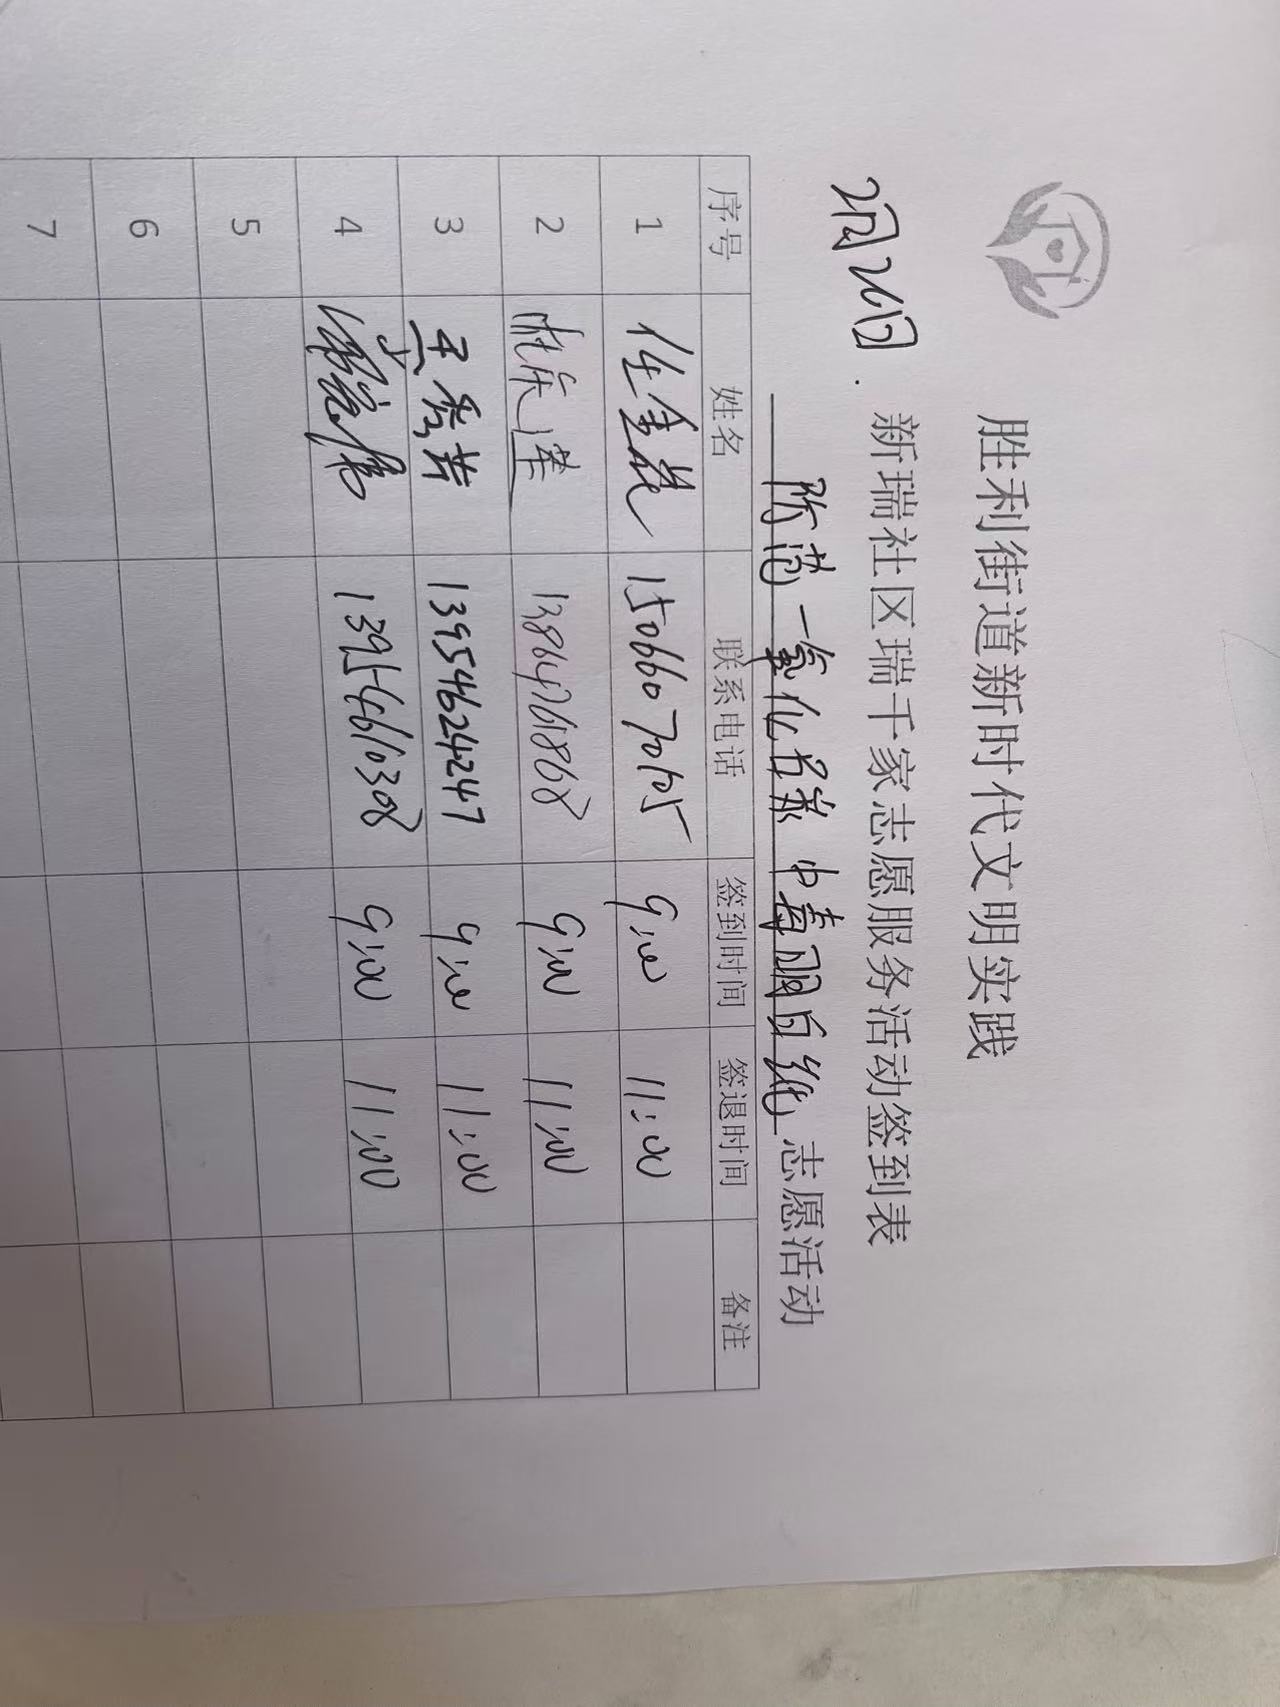 胜利街道新时代文明实践
2月26日.
新瑞社区瑞千家志愿服务活动签到表
防范一氧化碳中毒明白纸志愿活动
序号 姓名 联系电话 签到时间 签退时间 备注
1 任金花 15066070105 9:00 11:00
2 13864761868 9:00 11:00
3 王秀芳 13954624247 9:00 11:00
4 13954610308 9:00 11:00
5
6
7